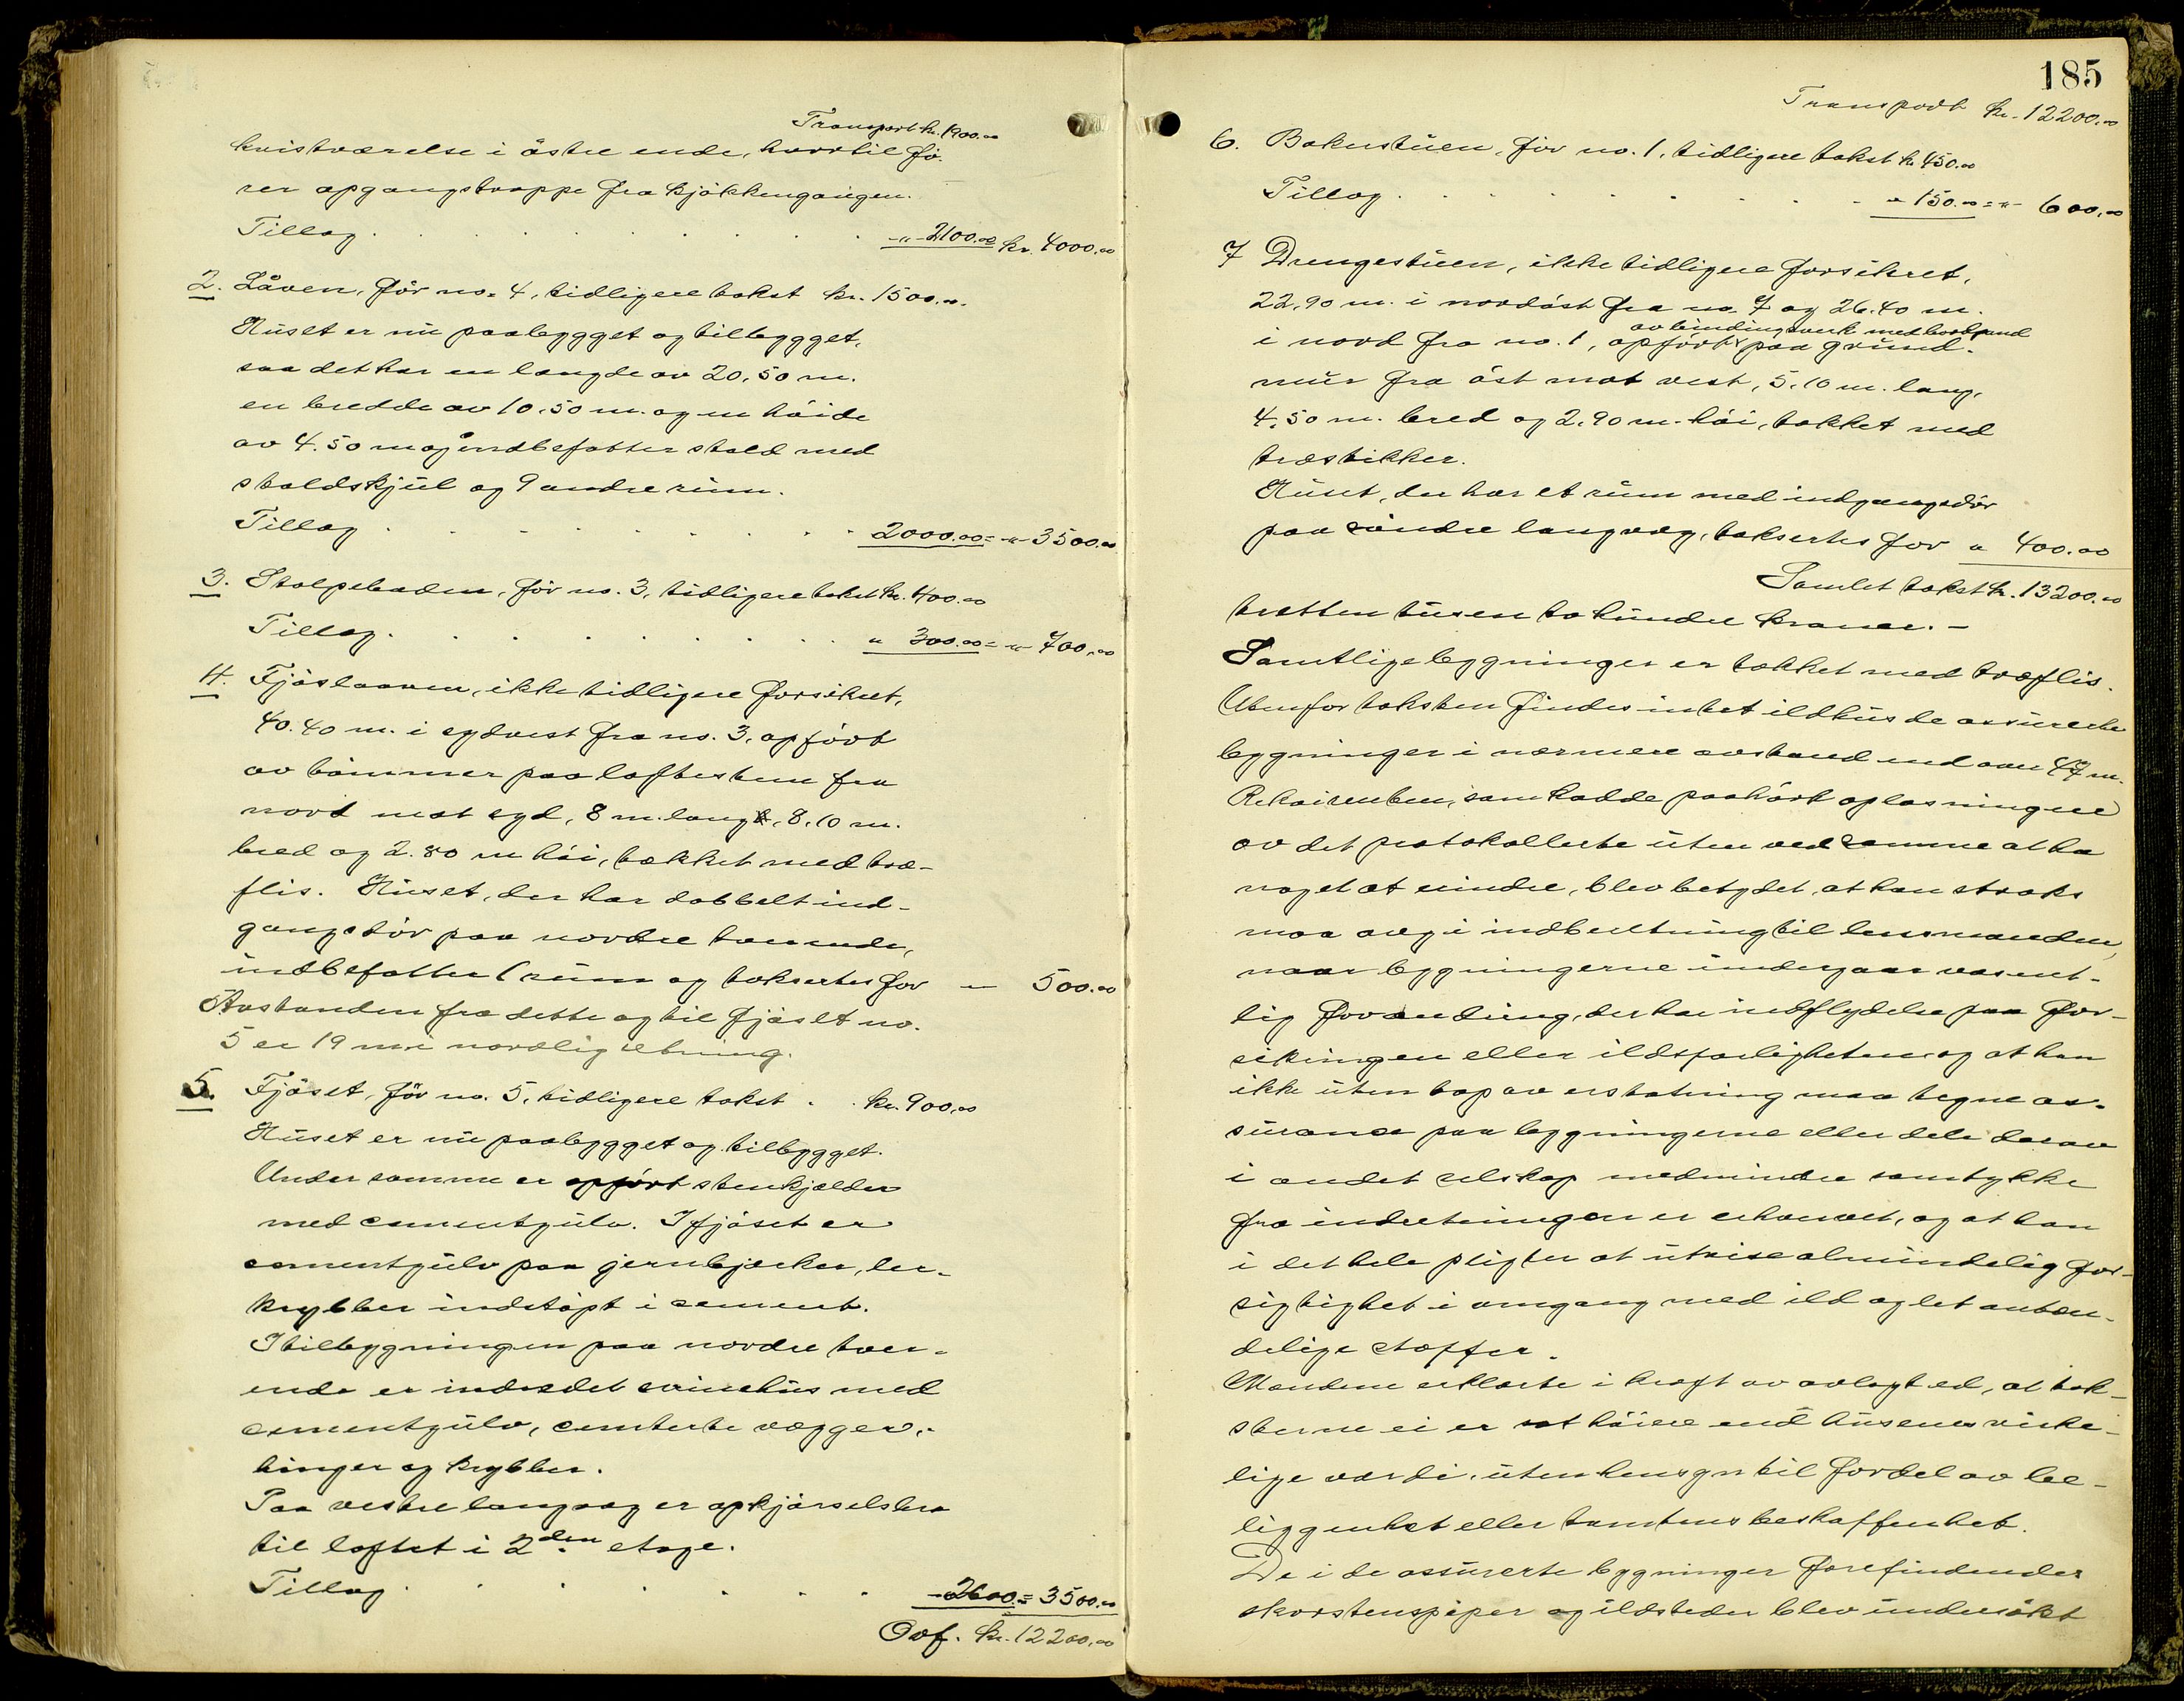 Transport kr. 1900.00
kvistværelse i östre ende, hvortil fö-
rer opgangstrappe fra kjökkengangen.
Tillæg . . . . . . . . -"- 2100.00 kr. 4000.00
2. Låven, för no. 4, tidligere takst kr. 1500.00
Huset er nu paabygget og tilbygget,
saa det har en længde av 20,50 m.
en bredde av 10,50 m. og en höide
av 4.50 m og indbefatter stald med
staldskjul og 9 andre rum.
Tillæg . . . . . . . 2000.00 = -"- 3500.00
3. Stolpeboden, för no. 3, tidligere takst kr. 400.00
Tillæg . . . . . . . " 300.00 = -"- 700.00
4. Fjöslaaven, ikke tidligere forsikret,
40.40 m. i sydvest fra no. 3, opfört
av tömmer paa loftesten fra
nord mot syd, 8 m. lang, 8,10 m.
bred og 2.80 m höi, tækket med træ-
flis. Huset, der har dobbelt ind-
gangsdör paa nordre tverende,
indbefatter 1 rum og taksertes for " 500.00
Avstanden fra dette og til fjöset no.
5 er 19 m. i nordlig retning.
5. Fjöset, för no. 5, tidligere takst . . kr. 900.00
Huset er nu paabygget og tilbygget.
Under samme er opfört stenkjælder
med cementgulv. I fjöset er
cementgulv paa jernbjælker, ler-
krybber indstöpt i cement.
I tilbygningen paa nordre tver-
ende er indredet svinehus med
cementgulv, cemterte vægger,
binger og krybber.
Paa vestre langvæg er opkjörselsbro
til loftet i 2den etage.
Tillæg . . . . . . . - 2600 = 3500.00
Ovf. kr. 12200.00
185
Transport kr. 12200.00
6. Bakerstuen, för no. 1, tidligere takst kr. 450.00
Tillæg . . . . . . . " 150.00 = -"- 600.00
7 Drengestuen, ikke tidligere forsikret,
22,90 m. i nordöst fra no. 7 og 26.40 m.
av bindingsverk med bordpanel
i nord fra no. 1, opfört paa grund-
mur fra öst mot vest, 5,10 m. lang,
4,50 m. bred og 2,90 m. höi, tækket med
træstikker.
Huset, der har et rum med indgangsdör
paa söndre langvæg, taksertes for " 400.00
Samlet takst kr. 13200.00
tretten tusen to hundre kroner. -
Samtlige bygninger er tækket med træflis.
Utenfor taksten findes intet ildhus de assurerte
bygninger i nærmere avstand end over 47 m.
Rekvirenten, som hadde paahört oplæsningen
av det protokollerte uten ved samme at ha
noget at erindre, blev betydet, at han straks
maa avgi indberetning til lensmanden,
naar bygningerne undergaar væsent-
lig forandring, der har indflydelse paa for-
sikringen eller ildsfarligheten og at han
ikke uten tap av erstatning maa tegne as-
surance paa bygningerne eller dele derav
i andet selskap medmindre samtykke
fra indretningen er erhvervet, og at han
i det hele pligter at utvise almindelig for-
sigtighet i omgang med ild og let anten-
delige stoffer.
Mændene erklærte i kraft av avlagt ed, at tak-
sterne ei er sat höiere end husenes virke-
lige værdi, uten hensyn til fordel av be-
liggenhet eller tomtens beskaffenhet.
De i de assurerte bygninger forefindende
skorstenspiper og ildsteder blev undersökt